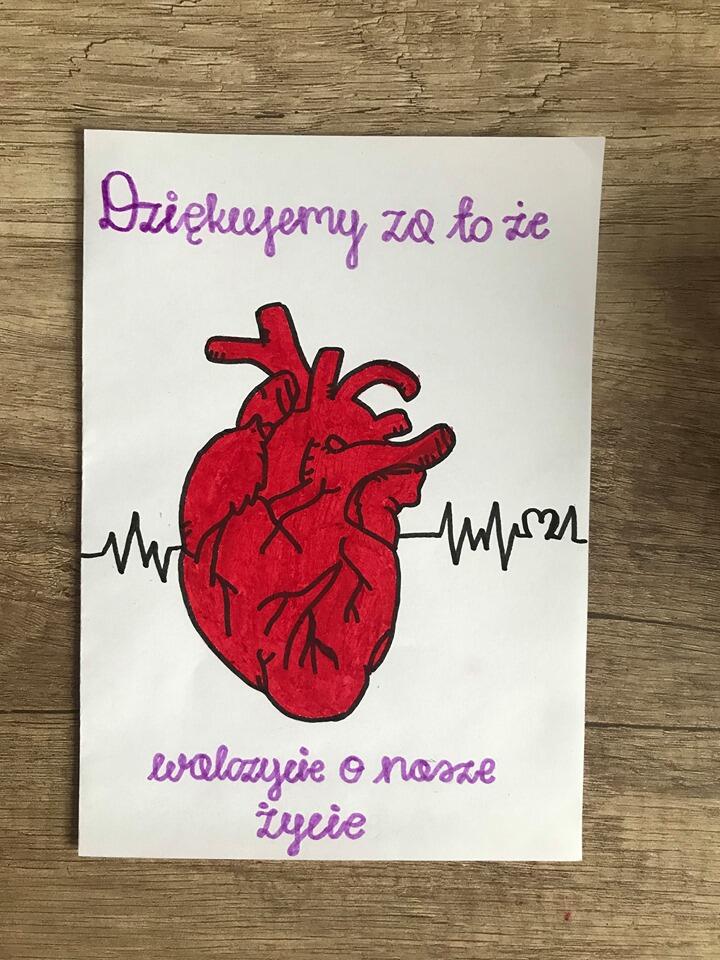 Dziękujemy za to że
walczycie o nasze
życie